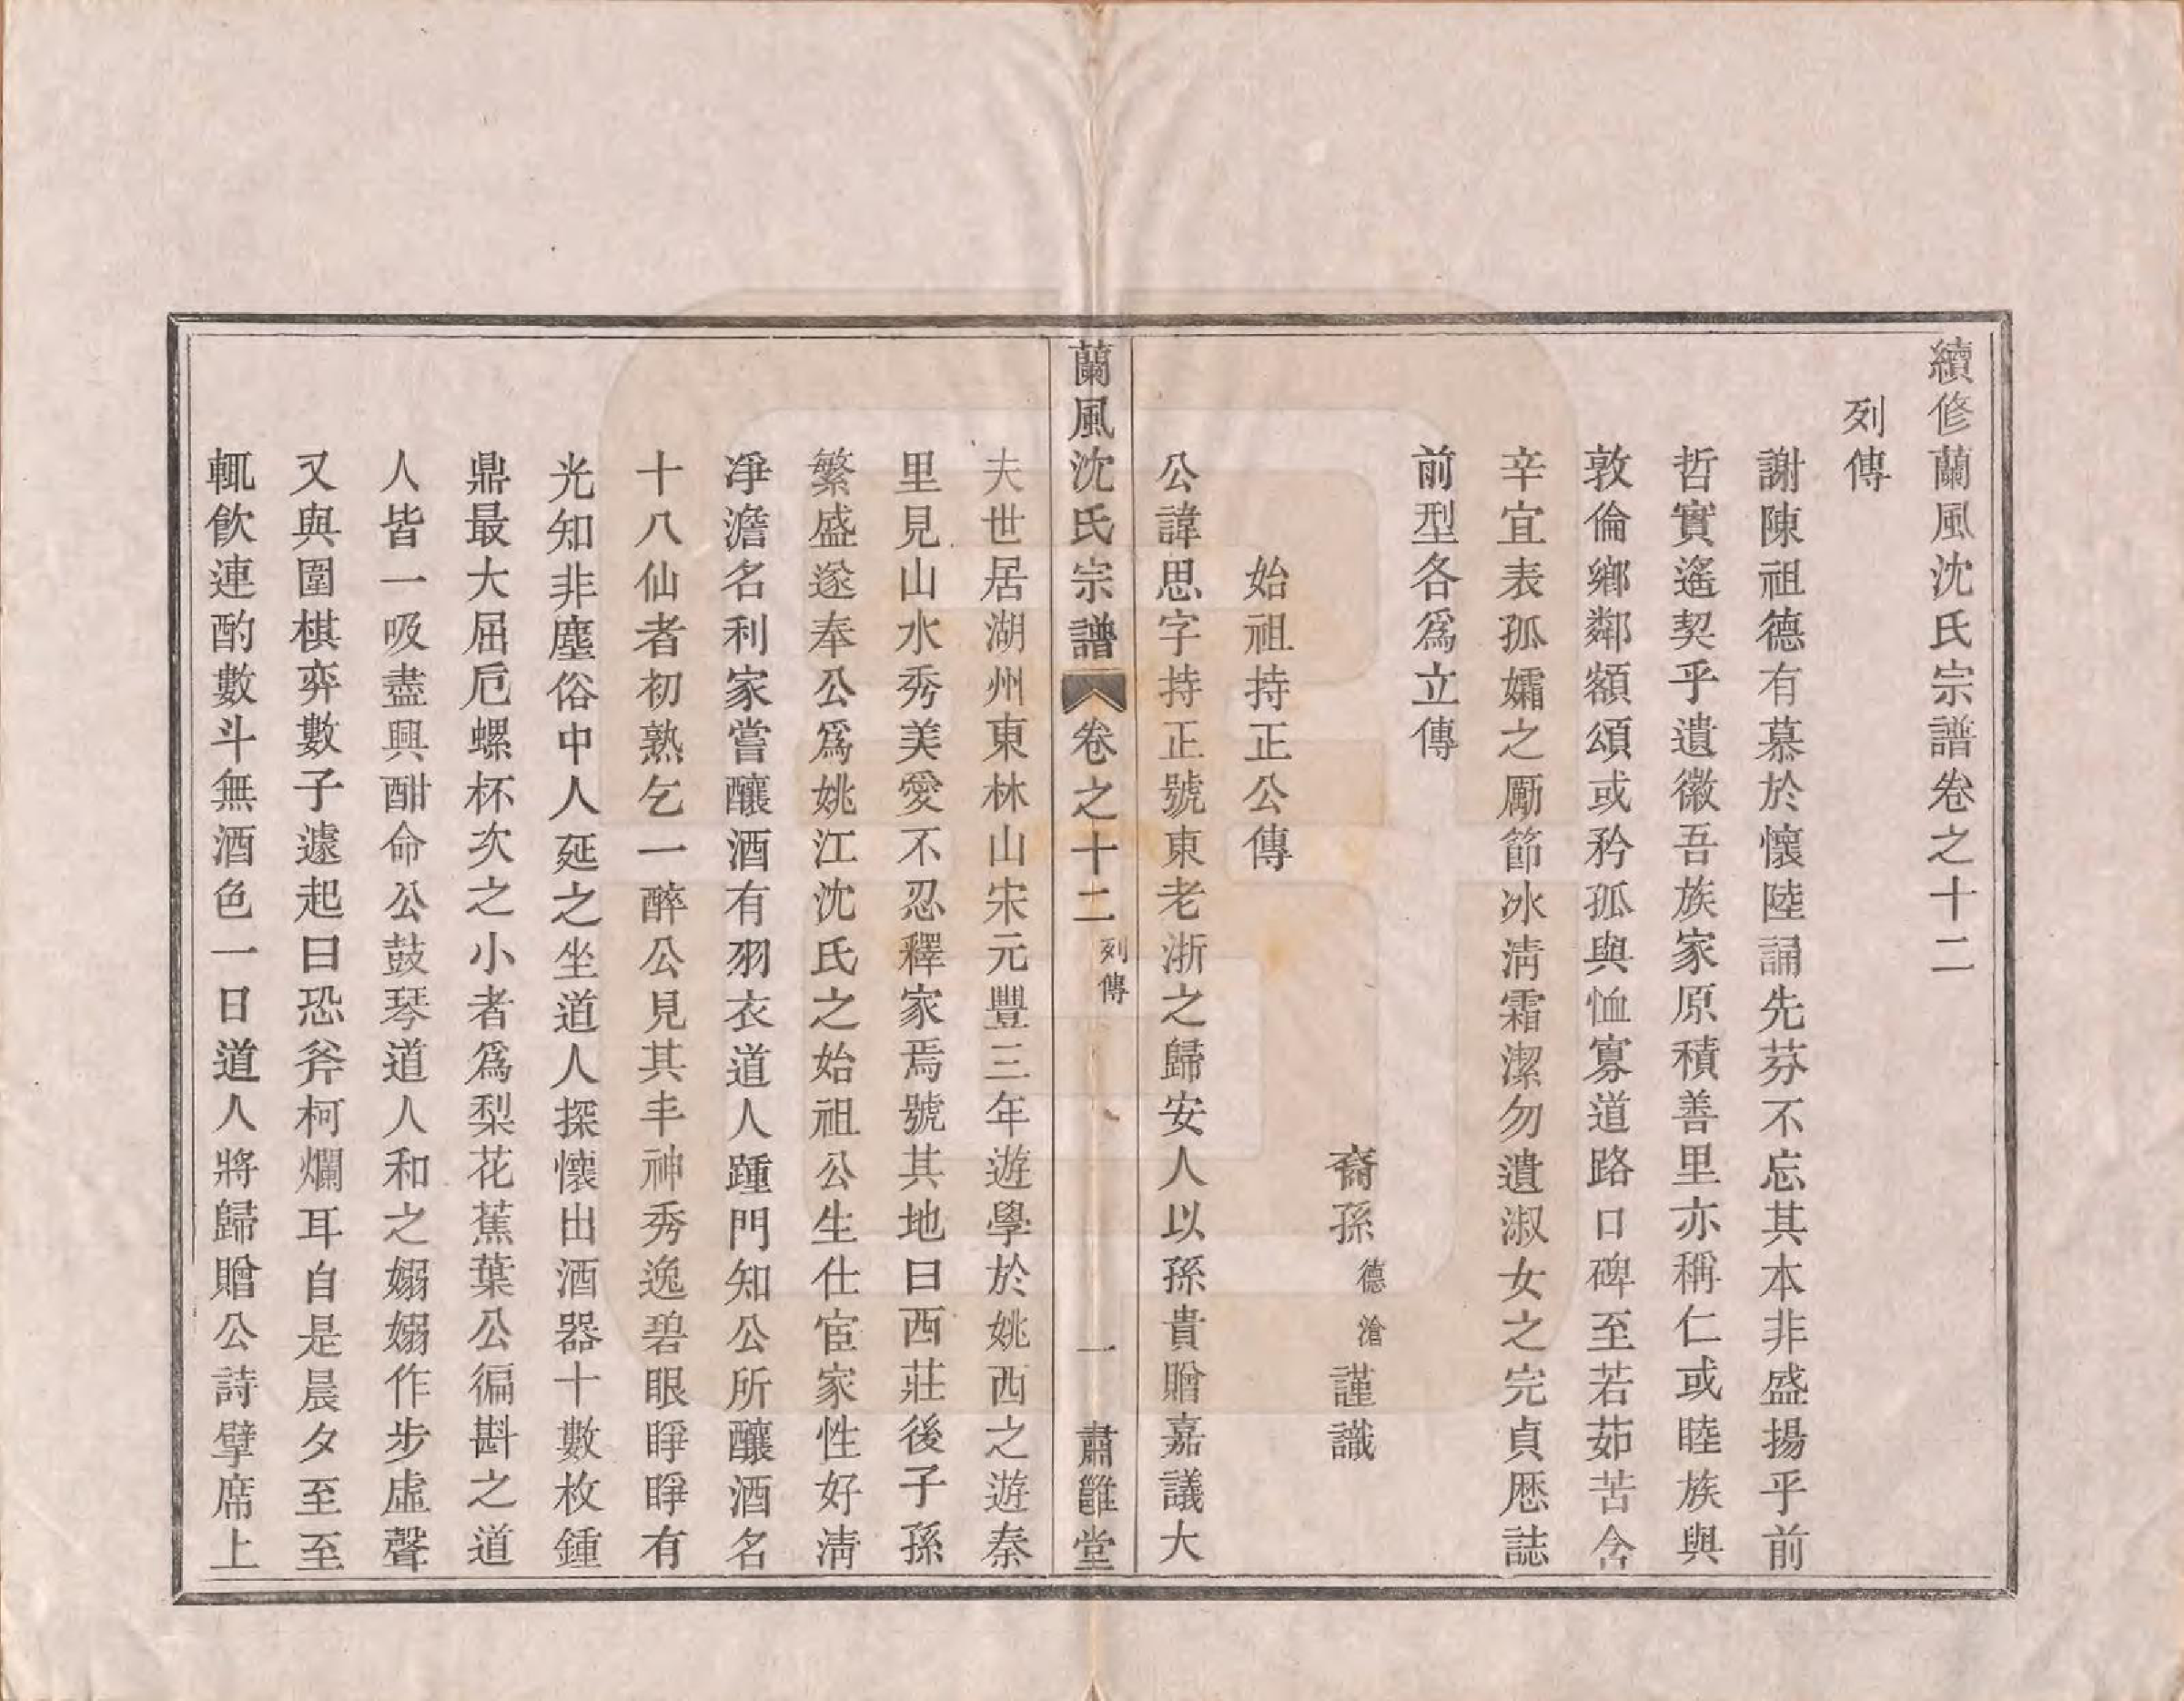 續修蘭風沈氏宗譜卷之十二
列傳
謝陳祖德有慕於懷陸誦先芬不忘其本非盛揚乎前
哲實遙契乎遺徽吾族家原積善里亦稱仁或睦族與
敦倫鄉鄰額頌或矜孤與恤寡道路口碑至若茹苦含
辛宜表孤孀之厲節冰清霜潔勿遺淑女之完貞歷誌
前型各爲立傳
裔孫德滄謹識
始祖持正公傳
公諱思字持正號東老浙之歸安人以孫貴贈嘉議大
蘭風沈氏宗譜 卷之十二 列傳 一 肅雝堂
夫世居湖州東林山宋元豐三年遊學於姚西之遊秦
里見山水秀美愛不忍釋家焉號其地曰西莊後子孫
繁盛遂奉公爲姚江沈氏之始祖公生仕宦家性好清
淨澹名利家嘗釀酒有羽衣道人踵門知公所釀酒名
十八仙者初熟乞一醉公見其丰神秀逸碧眼睜睜有
光知非塵俗中人延之坐道人探懷出酒器十數枚鍾
鼎最大屈卮螺杯次之小者爲梨花蕉葉公徧斟之道
人皆一吸盡興酣命公鼓琴道人和之嫋嫋作步虛聲
又與圍棋弈數子遽起曰恐斧柯爛耳自是晨夕至至
輒飲連酌數斗無酒色一日道人將歸贈公詩擘席上